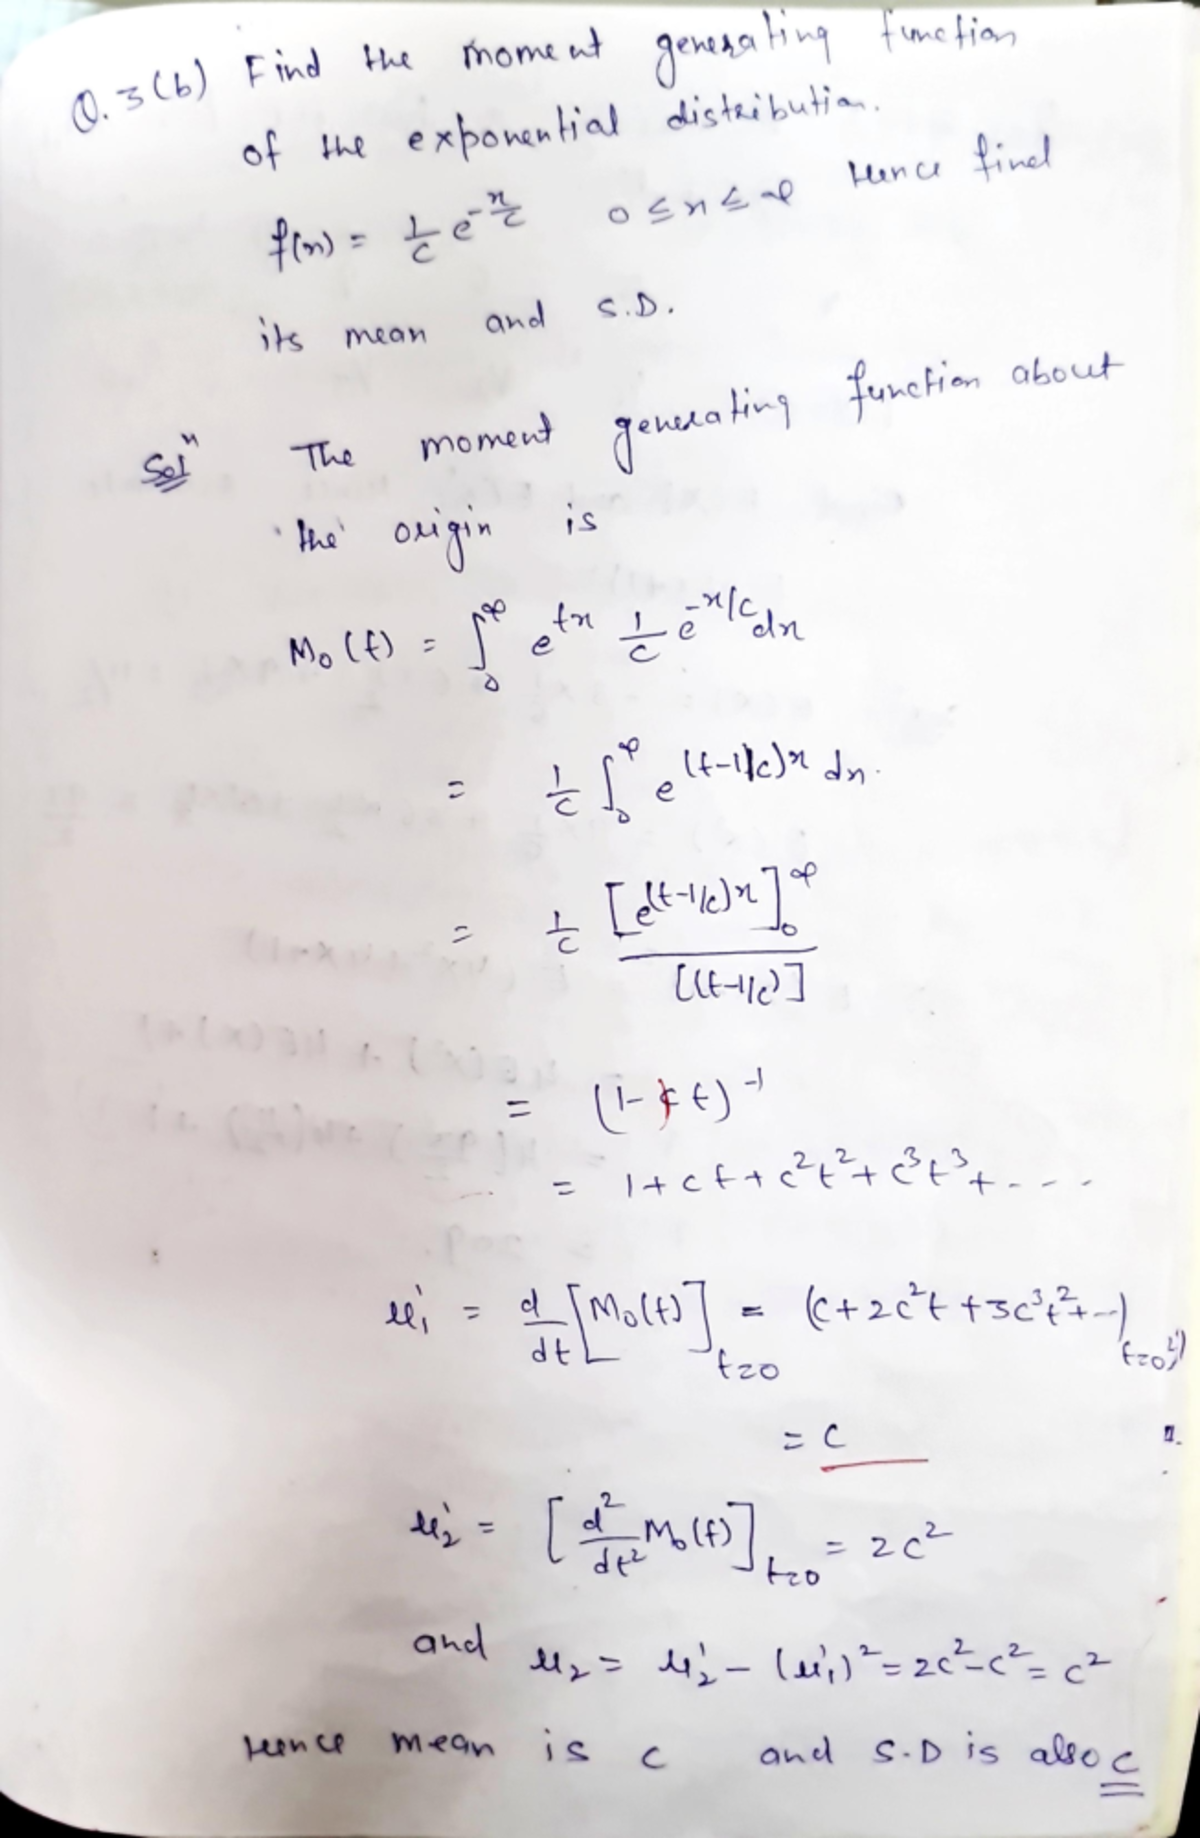 Q.3(b) Find the moment generating function
of the exponential distribution.
f(x) = 1/c e^{-x/c} 0 ≤ x ≤ ∞ Hence find
its mean and S.D.
Solⁿ The moment generating function about
the origin is
M₀(t) = ∫₀^∞ e^{tx} 1/c e^{-x/c} dx
= 1/c ∫₀^∞ e^{(t-1/c)x} dx.
= 1/c [e^{(t-1/c)x}]₀^∞ / [(t-1/c)]
= (1-ct)⁻¹
= 1+ct+c²t²+c³t³+----
μ₁' = d/dt [M₀(t)]_{t=0} = (c+2c²t+3c³t²+--)_{t=0}
= c
μ₂' = [d²/dt² M₀(t)]_{t=0} = 2c²
and μ₂ = μ₂' - (μ₁')² = 2c²-c² = c²
Hence mean is c and S.D is also c